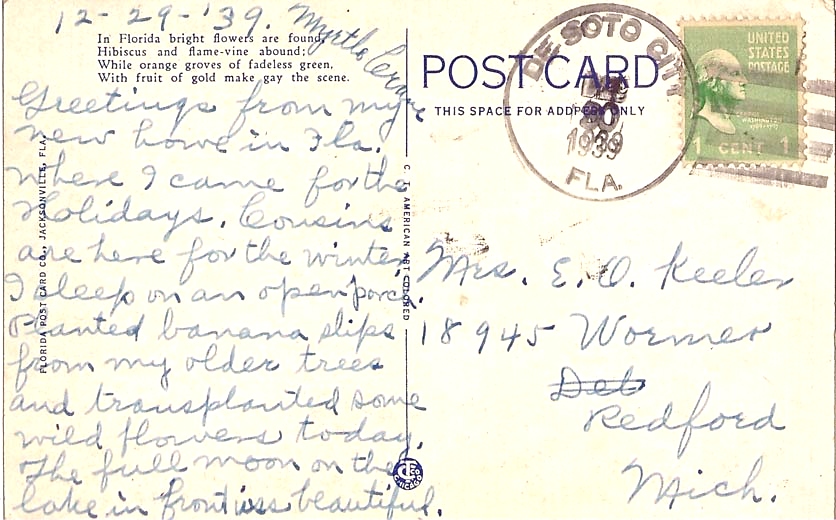 12-29-'39.
In Florida bright flowers are found,
Hibiscus and flame-vine abound;
While orange groves of fadeless green,
With fruit of gold make gay the scene.
Greetings from my
new home in Fla.
where I came for the
Holidays. Cousins
are here for the winter.
I sleep on an open porch.
Planted banana slips
from my older trees
and transplanted some
wild flowers today.
The full moon on the
lake in front is beautiful.
Myrtle
FLORIDA POST CARD CO., JACKSONVILLE, FLA.
C. T. AMERICAN ART COLORED
CHICAGO
POST CARD
THIS SPACE FOR ADDRESS ONLY
DE SOTO CITY
DEC
30
1939
FLA.
UNITED
STATES
POSTAGE
1 CENT 1
Mrs. E. O. Keeler
18945 Wormer
Det
Redford
Mich.